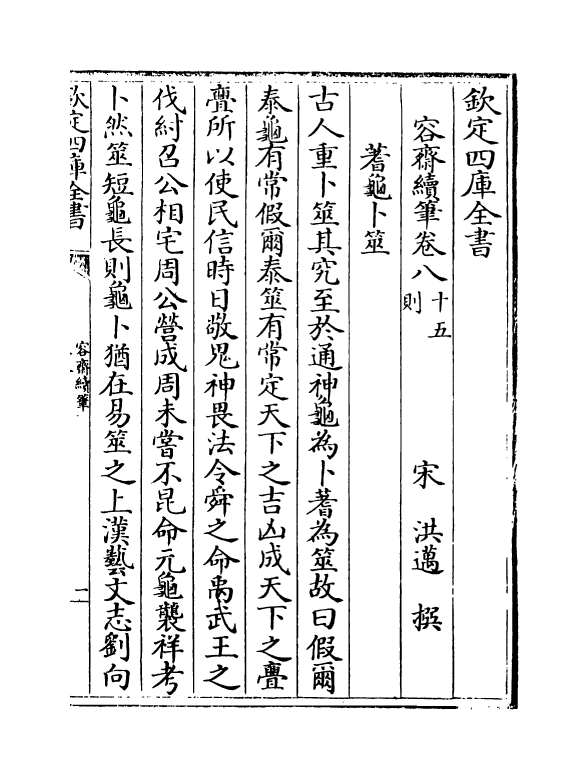 欽定四庫全書
容齋續筆卷八 十五則 宋 洪邁 撰
蓍龜卜筮
古人重卜筮其究至於通神龜為卜蓍為筮故曰假爾
泰龜有常假爾泰筮有常定天下之吉凶成天下之亹
亹所以使民信時日敬鬼神畏法令舜之命禹武王之
伐紂召公相宅周公營成周未嘗不昆命元龜襲祥考
卜然筮短龜長則龜卜猶在易筮之上漢藝文志劉向
欽定四庫全書 容齋續筆 二